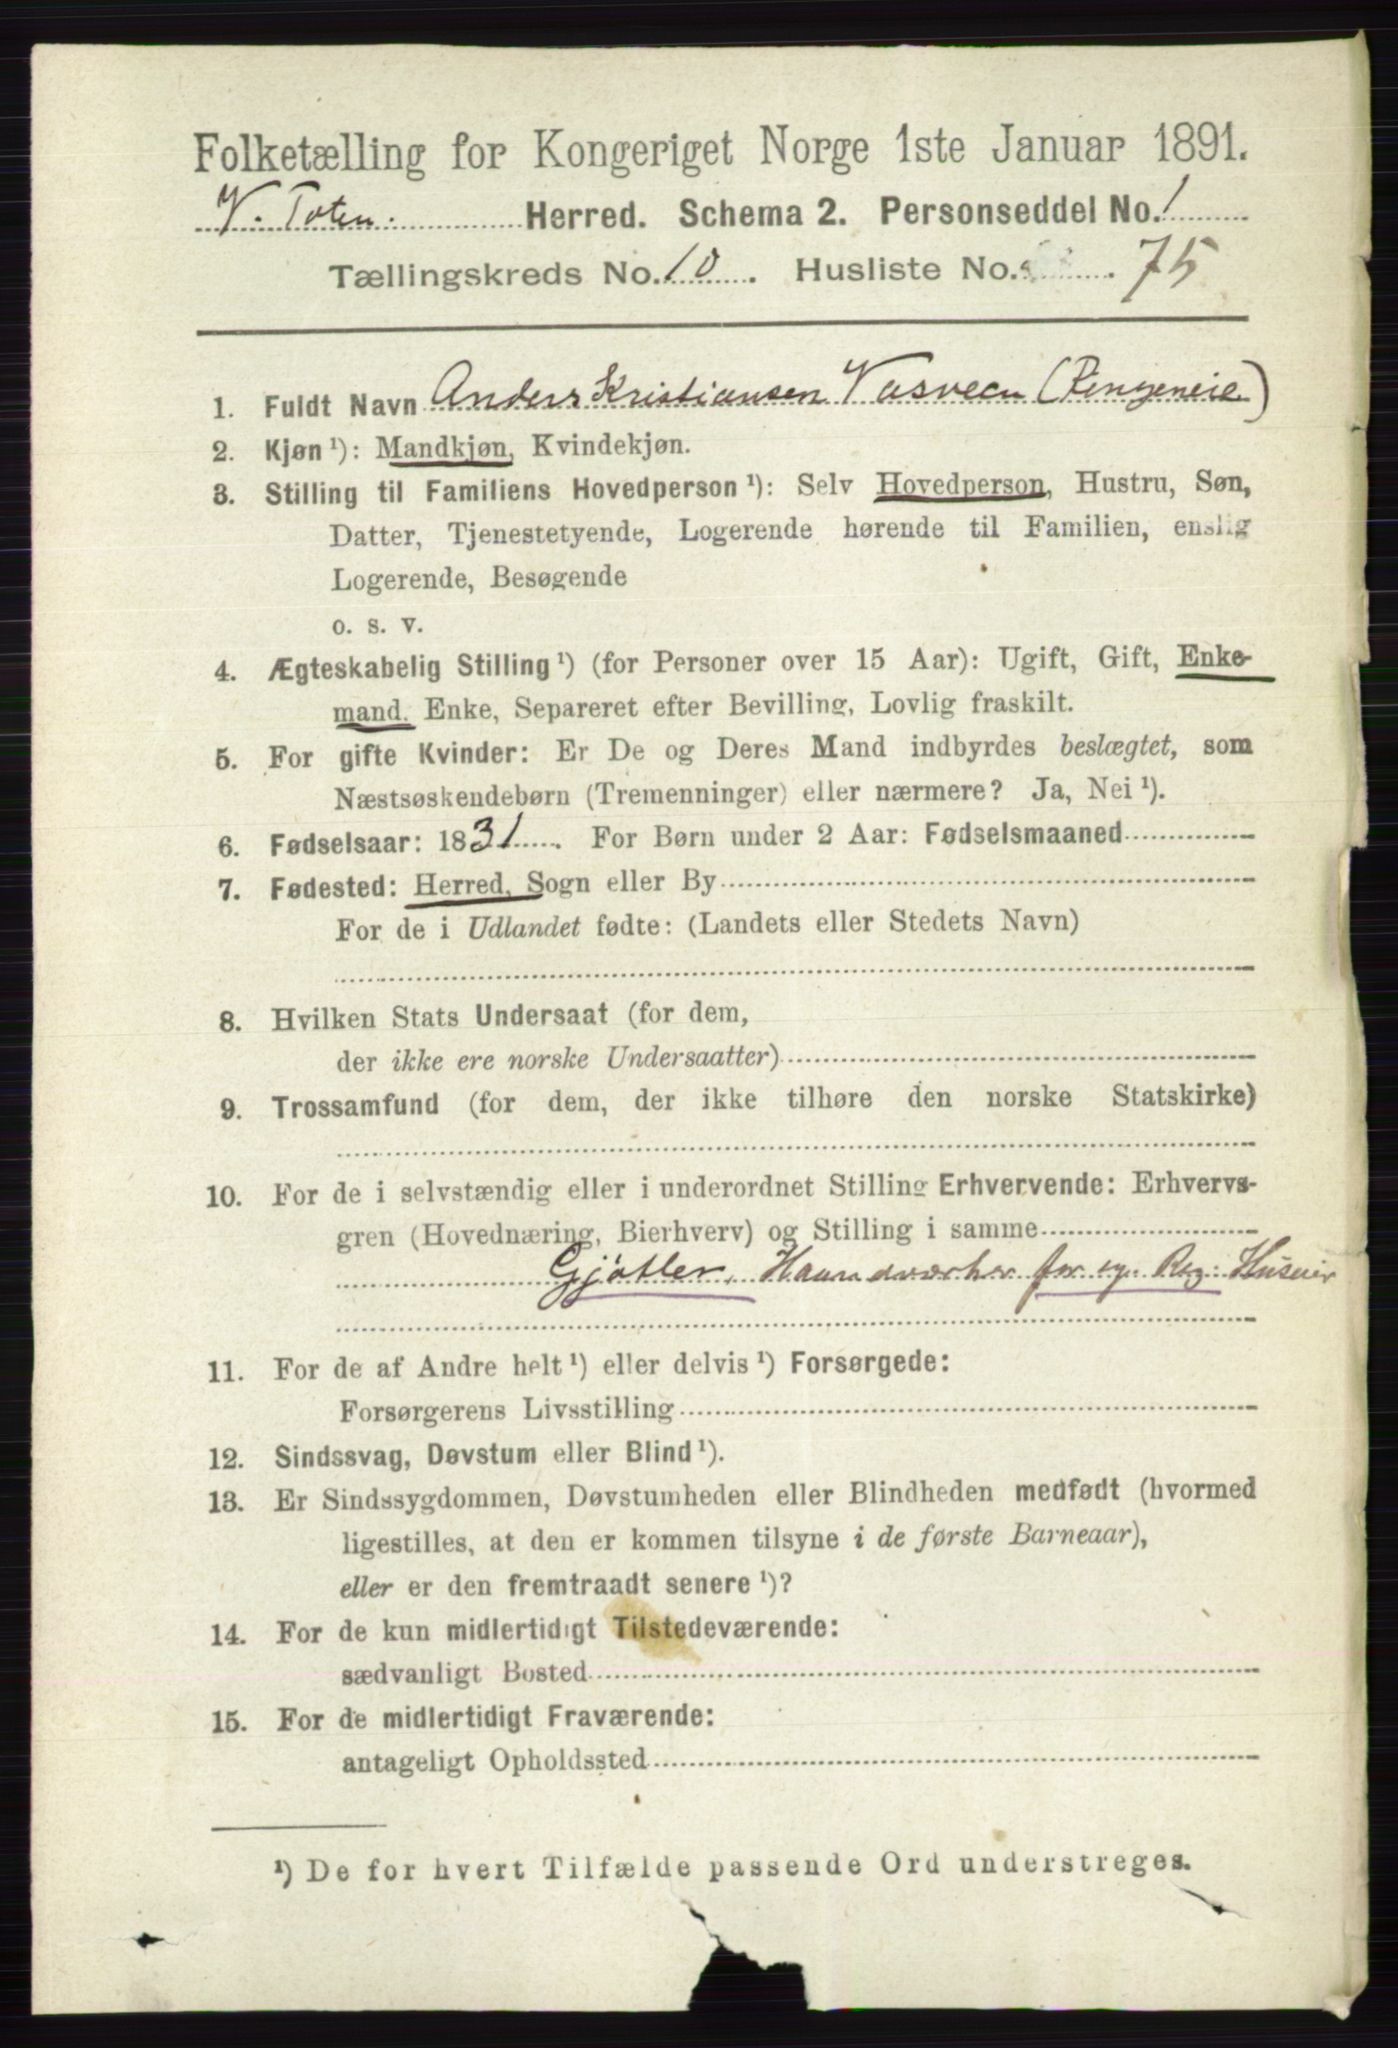 Folketælling for Kongeriget Norge 1ste Januar 1891.
V. Toten. Herred. Schema 2. Personseddel No. 1
Tællingskreds No. 10. Husliste No. 75
1. Fuldt Navn Anders Kristiansen Vasveen (Ringeneie)
2. Kjøn ¹): Mandkjøn, Kvindekjøn.
3. Stilling til Familiens Hovedperson ¹): Selv Hovedperson, Hustru, Søn,
Datter, Tjenestetyende, Logerende hørende til Familien, enslig
Logerende, Besøgende
o. s. v.
4. Ægteskabelig Stilling ¹) (for Personer over 15 Aar): Ugift, Gift, Enke-
mand, Enke, Separeret efter Bevilling, Lovlig fraskilt.
5. For gifte Kvinder: Er De og Deres Mand indbyrdes beslægtet, som
Næstsøskendebørn (Tremenninger) eller nærmere? Ja, Nei ¹).
6. Fødselsaar: 1831. For Børn under 2 Aar: Fødselsmaaned
7. Fødested: Herred, Sogn eller By
For de i Udlandet fødte: (Landets eller Stedets Navn)
8. Hvilken Stats Undersaat (for dem,
der ikke ere norske Undersaatter)
9. Trossamfund (for dem, der ikke tilhøre den norske Statskirke)
10. For de i selvstændig eller i underordnet Stilling Erhvervende: Erhvervs-
gren (Hovednæring, Bierhverv) og Stilling i samme
Gjøtler, Haandværker for eg. Reg: Huseier
11. For de af Andre helt ¹) eller delvis ¹) Forsørgede:
Forsørgerens Livsstilling
12. Sindssvag, Døvstum eller Blind ¹).
13. Er Sindssygdommen, Døvstumheden eller Blindheden medfødt (hvormed
ligestilles, at den er kommen tilsyne i de første Barneaar),
eller er den fremtraadt senere ¹)?
14. For de kun midlertidigt Tilstedeværende:
sædvanligt Bosted
15. For de midlertidigt Fraværende:
antageligt Opholdssted
¹) De for hvert Tilfælde passende Ord understreges.